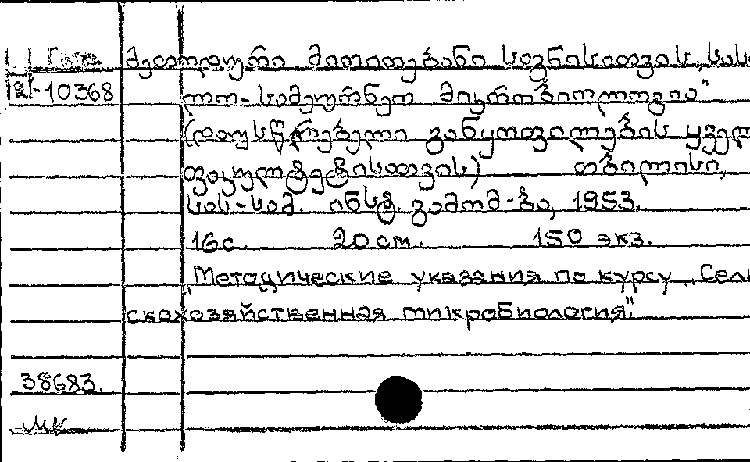 მეთოდური მითითებანი საგნისათვის „სას
12-10368 ლო-სამეურნეო მიკრობიოლოგია"
(დაუსწრებელი განყოფილების ყველ
ფაკულტეტისათვის) თბილისი,
სას-სამ. ინსტ. გამომ-ბა, 1953.
16с. 20 см. 150 экз.
„Методические указания по курсу „Сель
скохозяйственная микробиология".
38683.
МК